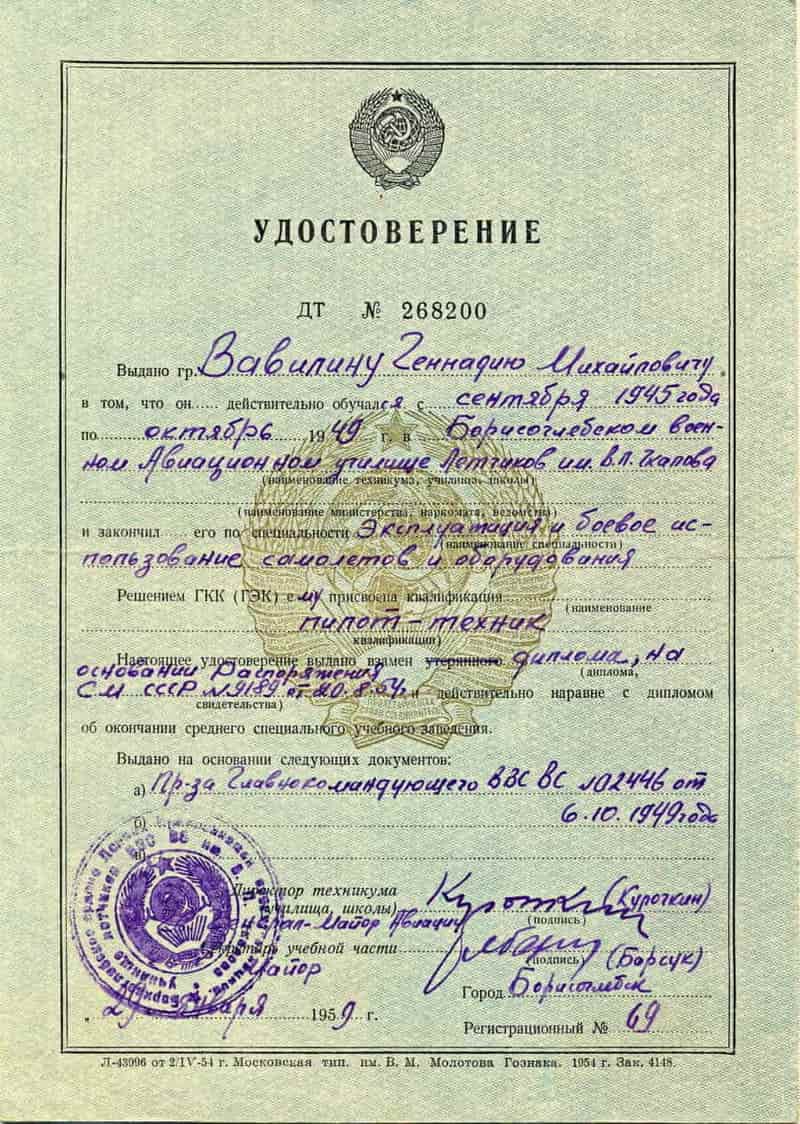 УДОСТОВЕРЕНИЕ
ДТ № 268200
Выдано гр. Вавилину Геннадию Михайловичу
в том, что он действительно обучался с сентября 1945 года
по октябрь 1949 г. в Борисоглебском воен-
ном Авиационном училище Летчиков им. В.П. Чкалова
(наименование техникума, училища, школы)
(наименование министерства, наркомата, ведомства)
и закончил его по специальности Эксплуатация и боевое ис-
(наименование специальности)
пользование самолетов и оборудования
Решением ГКК (ГЭК) ему присвоена квалификация
(наименование
пилот-техник
квалификации)
Настоящее удостоверение выдано взамен утерянного диплома, на
(диплома,
основании Распоряжения
СМ СССР №9189 от 20.8.54г и действительно наравне с дипломом
свидетельства)
об окончании среднего специального учебного заведения.
Выдано на основании следующих документов:
а) Пр-за Главнокомандующего ВВС ВС №02446 от
б) 6.10.1949 года
Директор техникума
(училища, школы) (Курочкин)
Генерал-Майор Авиации (подпись)
Секретарь учебной части (Барсук)
(подпись)
Майор
Город Борисоглебск
29 января 1959 г.
Регистрационный № 69
Л-43996 от 2/IV-54 г. Московская тип. им. В. М. Молотова Гознака. 1954 г. Зак. 4148.